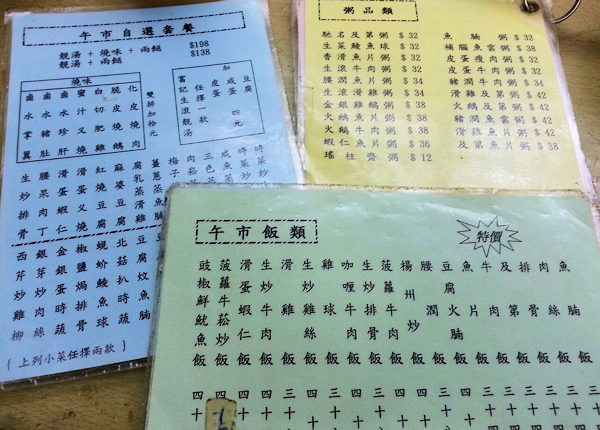 午市自選套餐
靚湯 + 燒味 + 兩餸 $198
靚湯 + 兩餸 $138
燒味
鹵水掌翼
鹵水豬肚
鹵水珍肝
蜜汁叉燒
白切肥雞
脆皮燒鵝
化皮燒肉
雙拼加拾元
富記生滾靚湯
任擇一款
加
皮蛋
咸蛋
豆腐
四元
生炒排骨
腰果肉丁
滑蛋蝦仁
滑蛋叉燒
紅燒豆腐
麻婆豆腐
西芹炒雞柳
銀芽炒肉絲
金銀蛋時蔬
椒鹽焗排骨
蜆蚧鯪魚球
北菇扒時蔬
豆腐炆魚腩
{ 上列小菜任擇兩款 }
粥品類
馳名及第粥 $ 32
生菜鯪魚球 $ 32
香滑魚片粥 $ 32
生滾牛肉粥 $ 32
腰潤魚片粥 $ 34
生滾滑雞粥 $ 34
金銀雞鵝粥 $ 38
火鵝魚片粥 $ 38
火鵝牛肉粥 $ 38
蝦仁魚片粥 $ 36
瑤柱齋粥 $ 12
魚腩粥 $ 32
補腦魚雲粥 $ 38
皮蛋瘦肉粥 $ 32
皮蛋牛肉粥 $ 32
豬潤牛肉粥 $ 34
滑雞及第粥 $ 38
火鵝及第粥 $ 38
豬潤魚雲粥 $ 38
滑雞魚片粥 $ 38
及第魚片粥 $ 38
午市飯類
特價
豉椒鮮魷魚飯
菠蘿牛菘炒飯
滑蛋蝦仁飯
生炒牛肉飯
滑雞飯
生炒雞絲飯
雞球飯
咖喱牛肉飯
生炒排骨飯
菠蘿牛肉飯
楊州炒飯
腰潤飯
豆腐火腩飯
魚片飯
牛肉飯
及第飯
排骨飯
肉絲飯
魚腩飯